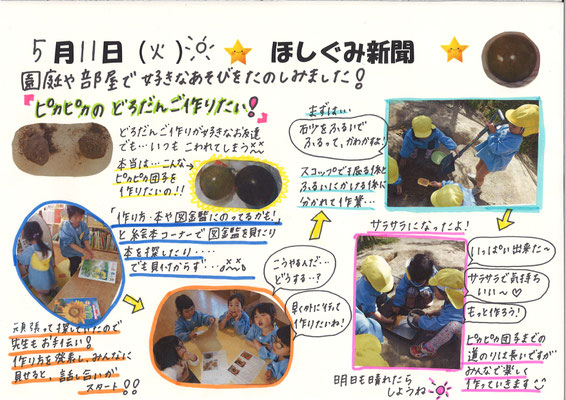 5月11日(火)
ほしぐみ新聞
園庭や部屋で好きなあそびをたのしみました!
『ピカピカの どろだんご作りたい!』
どろだんご作りが好きなお友達
でも…いつも こわれてしまう
本当は…こんな
ピカピカ団子を
作りたいの!!
「作り方、本や図鑑にのってるかも!」
と絵本コーナーで図鑑を見たり
本を探したり・・・・
でも見付からず…
頑張って探していたので
先生もお手伝い!
作り方を発表し、みんなに
見せると、話し合いが
スタート!!
こうやるんだ…
どうする…?
早く外に行って
作りたいね!
まずは…
石少をふるいで
ふるって、かわかすよ!
スコップで土を掘る係と
ふるいにかける係に
分かれて作業…
サラサラになったよ!
いっぱい出来た~
サラサラで気持ち
いい~♡
もっと作ろう!
ピカピカ団子までの
道のりは長いですが
みんなで楽しく
作っていきます
明日も晴れたら
しようね